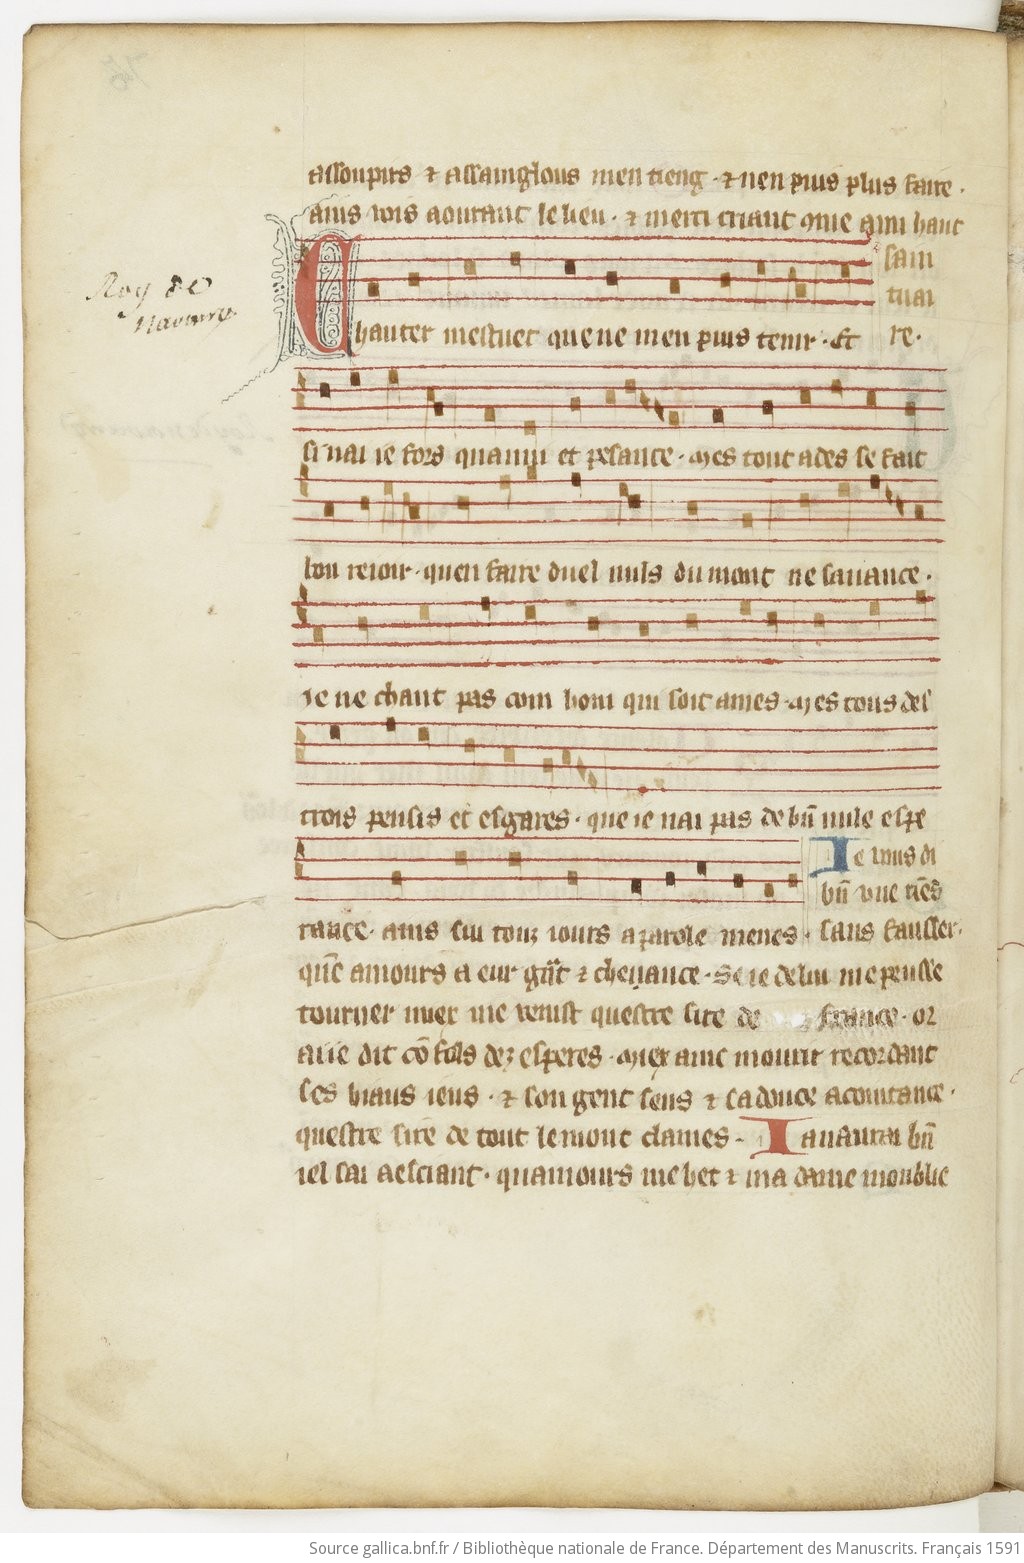 assoupirs ⁊ assainglous men tieng · ⁊ nen puis plus faire ·
ains vois aourant le lieu · ⁊ merci criant que ami haut
sain
tuai
re ·
Roy de
Navarre
Chanter mestuet que ne men puis tenir · Et
si nai ie fors quanui et pesance · Mes tout ades se fait
bon reioir · quen faire duel nuls du mont ne sauance ·
ie ne chant pas com hom qui soit ames · Mes tous des
trois pensis et esgares · que ie nai pas de bn̄ nule espe
Ie vous di
bn̄ vne riēs
rance · ains sui touz iours a parole menes · sans fausser ·
qūe amours a eur grāt ⁊ cheuance · Se ie de lui me peusse
tourner miex me venist questre sire de france · or
ai ie dit cō fols desesperes · Miex aim mourir recordant
ses biaus ieus · ⁊ son gent sens ⁊ sa douce acointance ·
questre sire de tout le mont clames · Ia naurai bn̄
iel sai aesciant · quamours me het ⁊ ma dame moublie
Source gallica.bnf.fr / Bibliothèque nationale de France. Département des Manuscrits. Français 1591